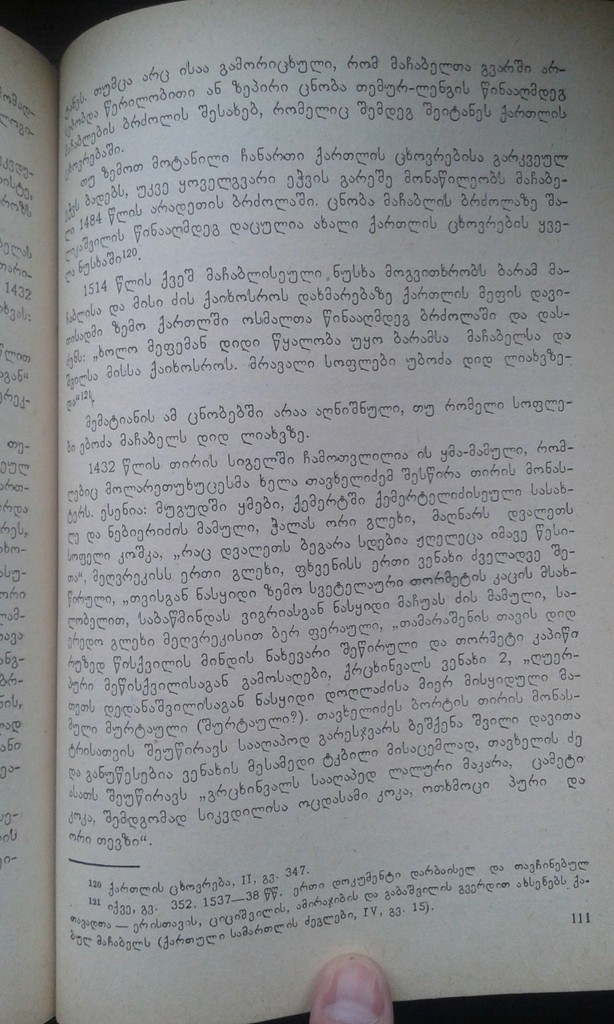 ტანეს. თუმცა არც ისაა გამორიცხული, რომ მაჩაბელთა გვარში არ-
სებობდა წერილობითი ან ზეპირი ცნობა თემურ-ლენგის წინააღმდეგ
მაჩაბლების ბრძოლის შესახებ, რომელიც შემდეგ შეიტანეს ქართლის
ცხოვრებაში.
თუ ზემოთ მოტანილი ჩანართი ქართლის ცხოვრებისა გარკვეულ
ეჭვს ბადებს, უკვე ყოველგვარი ეჭვის გარეშე მონაწილეობს მაჩაბე-
ლი 1484 წლის არადეთის ბრძოლაში. ცნობა მაჩაბლის ბრძოლაზე შა-
ლიკაშვილის წინააღმდეგ დაცულია ახალი ქართლის ცხოვრების ყვე-
ლა ნუსხაში120.
1514 წლის ქვეშ მაჩაბლისეული ნუსხა მოგვითხრობს ბარამ მა-
ჩაბლისა და მისი ძის ქაიხოსროს დახმარებაზე ქართლის მეფის დავი-
თისადმი ზემო ქართლში ოსმალთა წინააღმდეგ ბრძოლაში და დას-
ძენს: „ხოლო მეფემან დიდი წყალობა უყო ბარამსა მაჩაბელსა და
შვილსა მისსა ქაიხოსროს. მრავალი სოფლები უბოძა დიდ ლიახვზე-
და“121.
მემატიანის ამ ცნობებში არაა აღნიშნული, თუ რომელი სოფლე-
ბი ებოძა მაჩაბელს დიდ ლიახვზე.
1432 წლის თირის სიგელში ჩამოთვლილია ის ყმა-მამული, რომ-
ლებიც მოლარეთუხუცესმა ხელა თავხელიძემ შესწირა თირის მონას-
ტერს. ესენია: მუგუდში ყმები, ქემერტში ქემერტელიძისეული სასახ-
ლე და ნებიერიძის მამული, ჭალას ორი გლეხი, მაღნარს დვალეთს
სოფელი კოშკა, „რაც დვალეთს ბეგარა სდებია ჟღელეცა იმავე წესი-
თა“, მეღვრეკისს ერთი გლეხი, ფხვენისს ერთი ვენახი ძველადვე შე-
წირული, „თვისგან ნასყიდი ზემო სვეტელაური თორმეტის კაცის მსახ-
ლობელით, საბაწმინდას ვიგრიასგან ნასყიდი მაჩუას ძის მამული, სა-
ერედო გლეხი მეღვრეკისით ბერ ფერაული, „თამარაშენის თავის დიდ
რუზედ წისქვილის მინდის ნახევარი შეწირული და თორმეტი კაპიწი
პური მეწისქვილისაგან გამოსაღები, ქრცხინვალს ვენახი 2, „ღუერ-
თეთს დედანაშვილისაგან ნასყიდი დოღლაძისა მიერ მისყიდული მა-
მული მურტაული (შურტაული?). თავხელიძეს ბორტის თირის მონას-
ტრისათვის შეუწირავს სააღაპოდ გარესჯვარს ბეშქენა შვილი დავითა
და განუწესებია ვენახის მესამედი ტკბილი მისაცემლად, თავხელის ძე
ასათს შეუწირავს „გრცხინვალს სააღაპედ ლალური მაკარა, ცამეტი
კოკა, შემდგომად სიკვდილისა ოცდასამი კოკა, ოთხმოცი პური და
ორი თევზი“.
120 ქართლის ცხოვრება, II, გვ. 347.
121 იქვე, გვ. 352. 1537—38 წწ. ერთი დოკუმენტი დარბაისელ და თავჩინებულ
თავადთა — ერისთავის, ციციშვილის, ამირაჯიბის და გაბაშვილის გვერდით ახსენებს ქა-
ბულ მაჩაბელს (ქართული სამართლის ძეგლები, IV, გვ. 15).
111